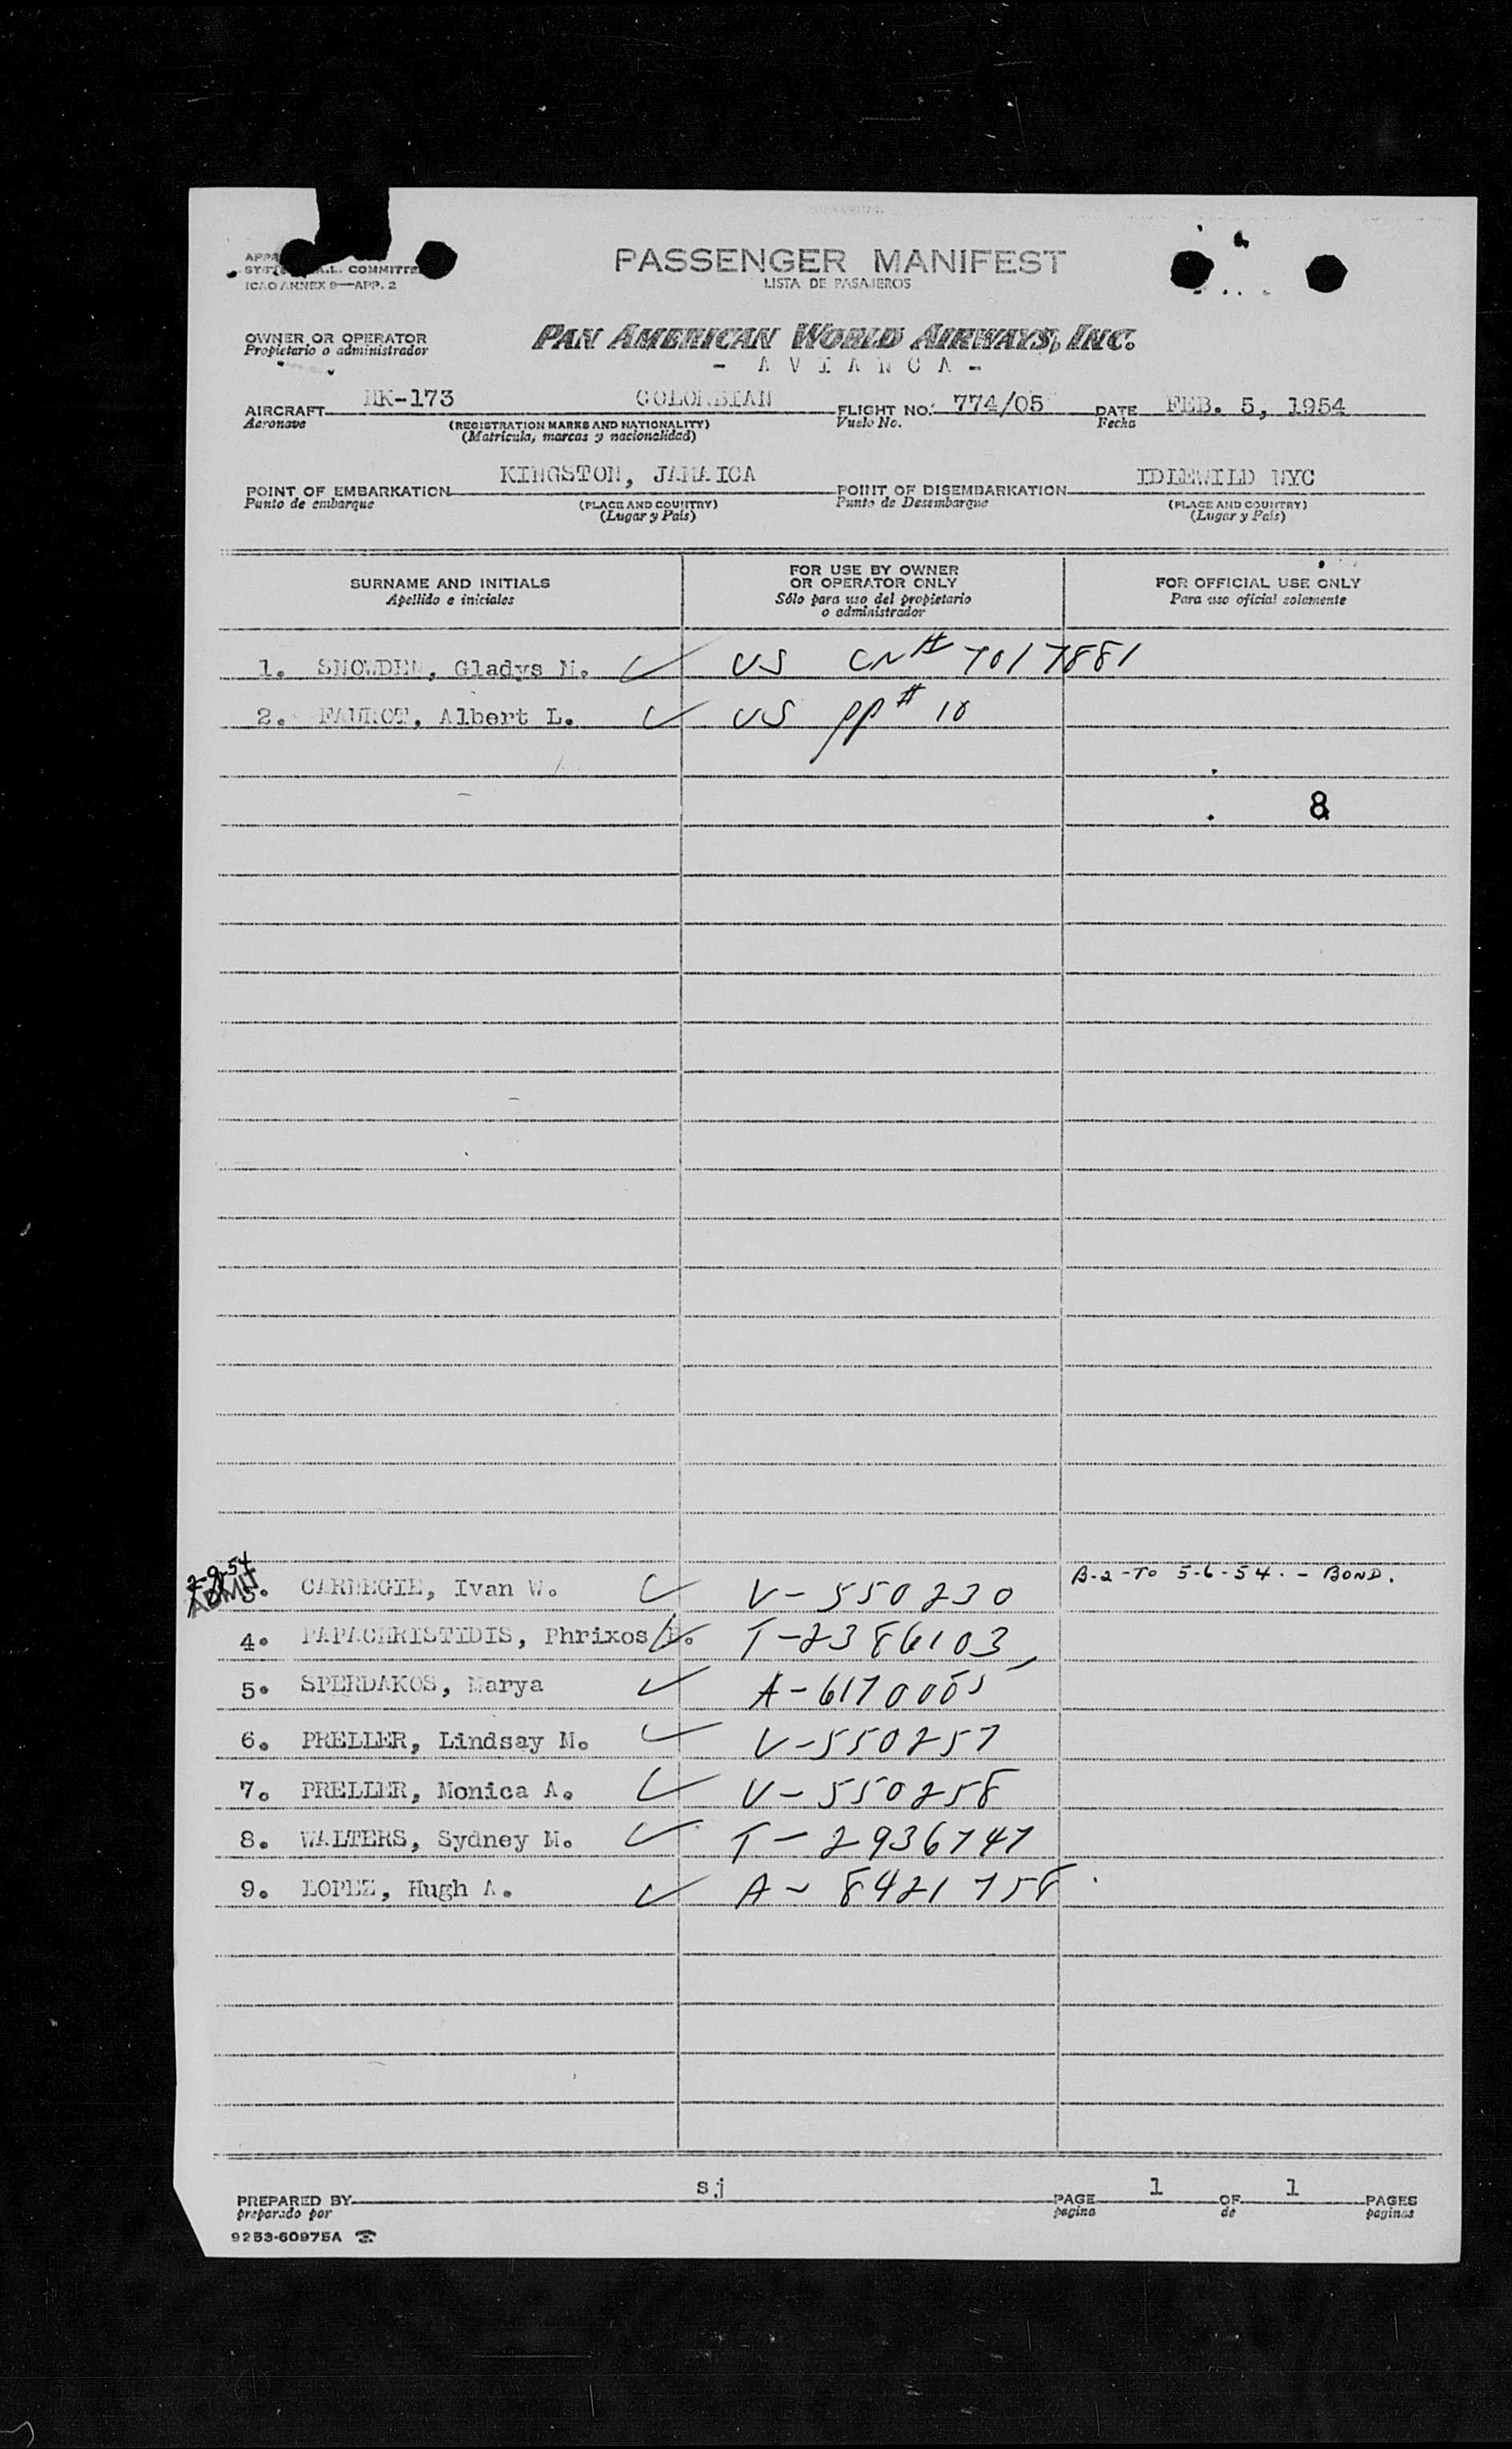 SYSTEM A.L. COMMITTEE
ICAO ANNEX 9—APP. 2
PASSENGER MANIFEST
LISTA DE PASAJEROS
OWNER OR OPERATOR
Propietario o administrador
PAN AMERICAN WORLD AIRWAYS, INC.
- A V I A N C A -
AIRCRAFT HK-173 COLOMBIAN FLIGHT NO. 774/05 DATE FEB. 5, 1954
Aeronave (REGISTRATION MARKS AND NATIONALITY) Vuelo No. Fecha
(Matrícula, marcas y nacionalidad)
POINT OF EMBARKATION KINGSTON, JAMAICA POINT OF DISEMBARKATION IDLEWILD NYC
Punto de embarque (PLACE AND COUNTRY) Punto de Desembarque (PLACE AND COUNTRY)
(Lugar y País) (Lugar y País)
SURNAME AND INITIALS
Apellido e iniciales
FOR USE BY OWNER
OR OPERATOR ONLY
Sólo para uso del propietario
o administrador
FOR OFFICIAL USE ONLY
Para uso oficial solamente
1. SNOWDEN, Gladys M. ✓ US CN# 7017881
2. FAUROT, Albert L. ✓ US pp# 10
8
2-9-54
ADMIT
3. CARNEGIE, Ivan W. ✓ V-550230 B-2-TO 5-6-54. - BOND.
4. PAPACHRISTIDIS, Phrixos ✓ T-2386103
5. SPERDAKOS, Marya ✓ A-6170005
6. PRELLER, Lindsay M. ✓ V-550257
7. PRELLER, Monica A. ✓ V-550258
8. WALTERS, Sydney M. ✓ T-2936747
9. LOPEZ, Hugh A. ✓ A-8421758
PREPARED BY sj PAGE 1 OF 1 PAGES
preparado por pagina de paginas
9253-60975A